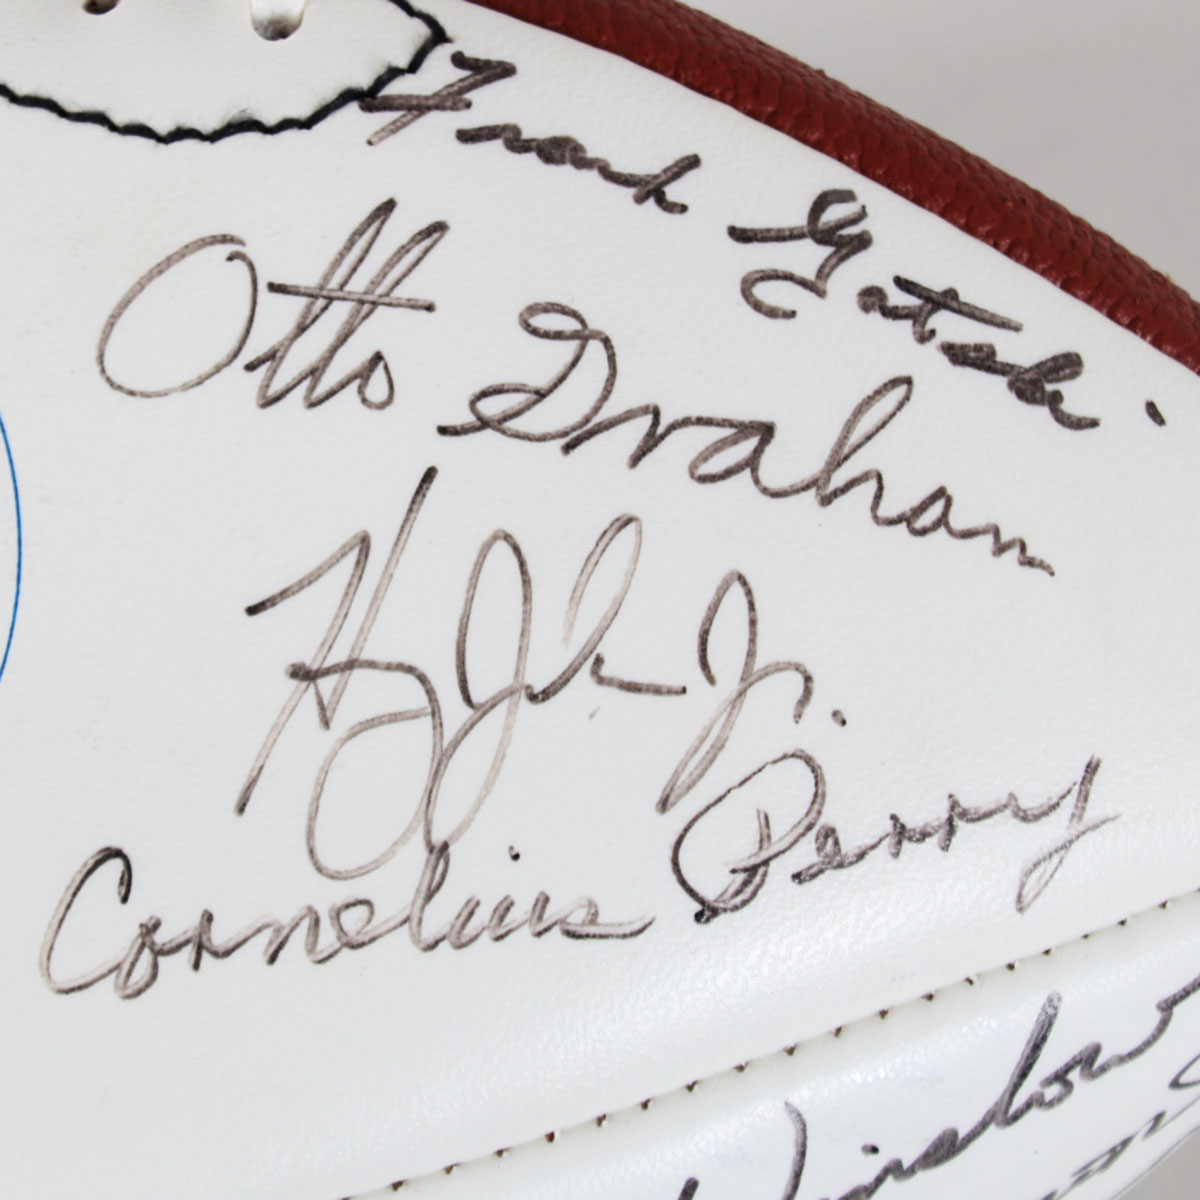 Frank Gatski
Otto Graham
H Jr.
Cornelius Perry
Winslow